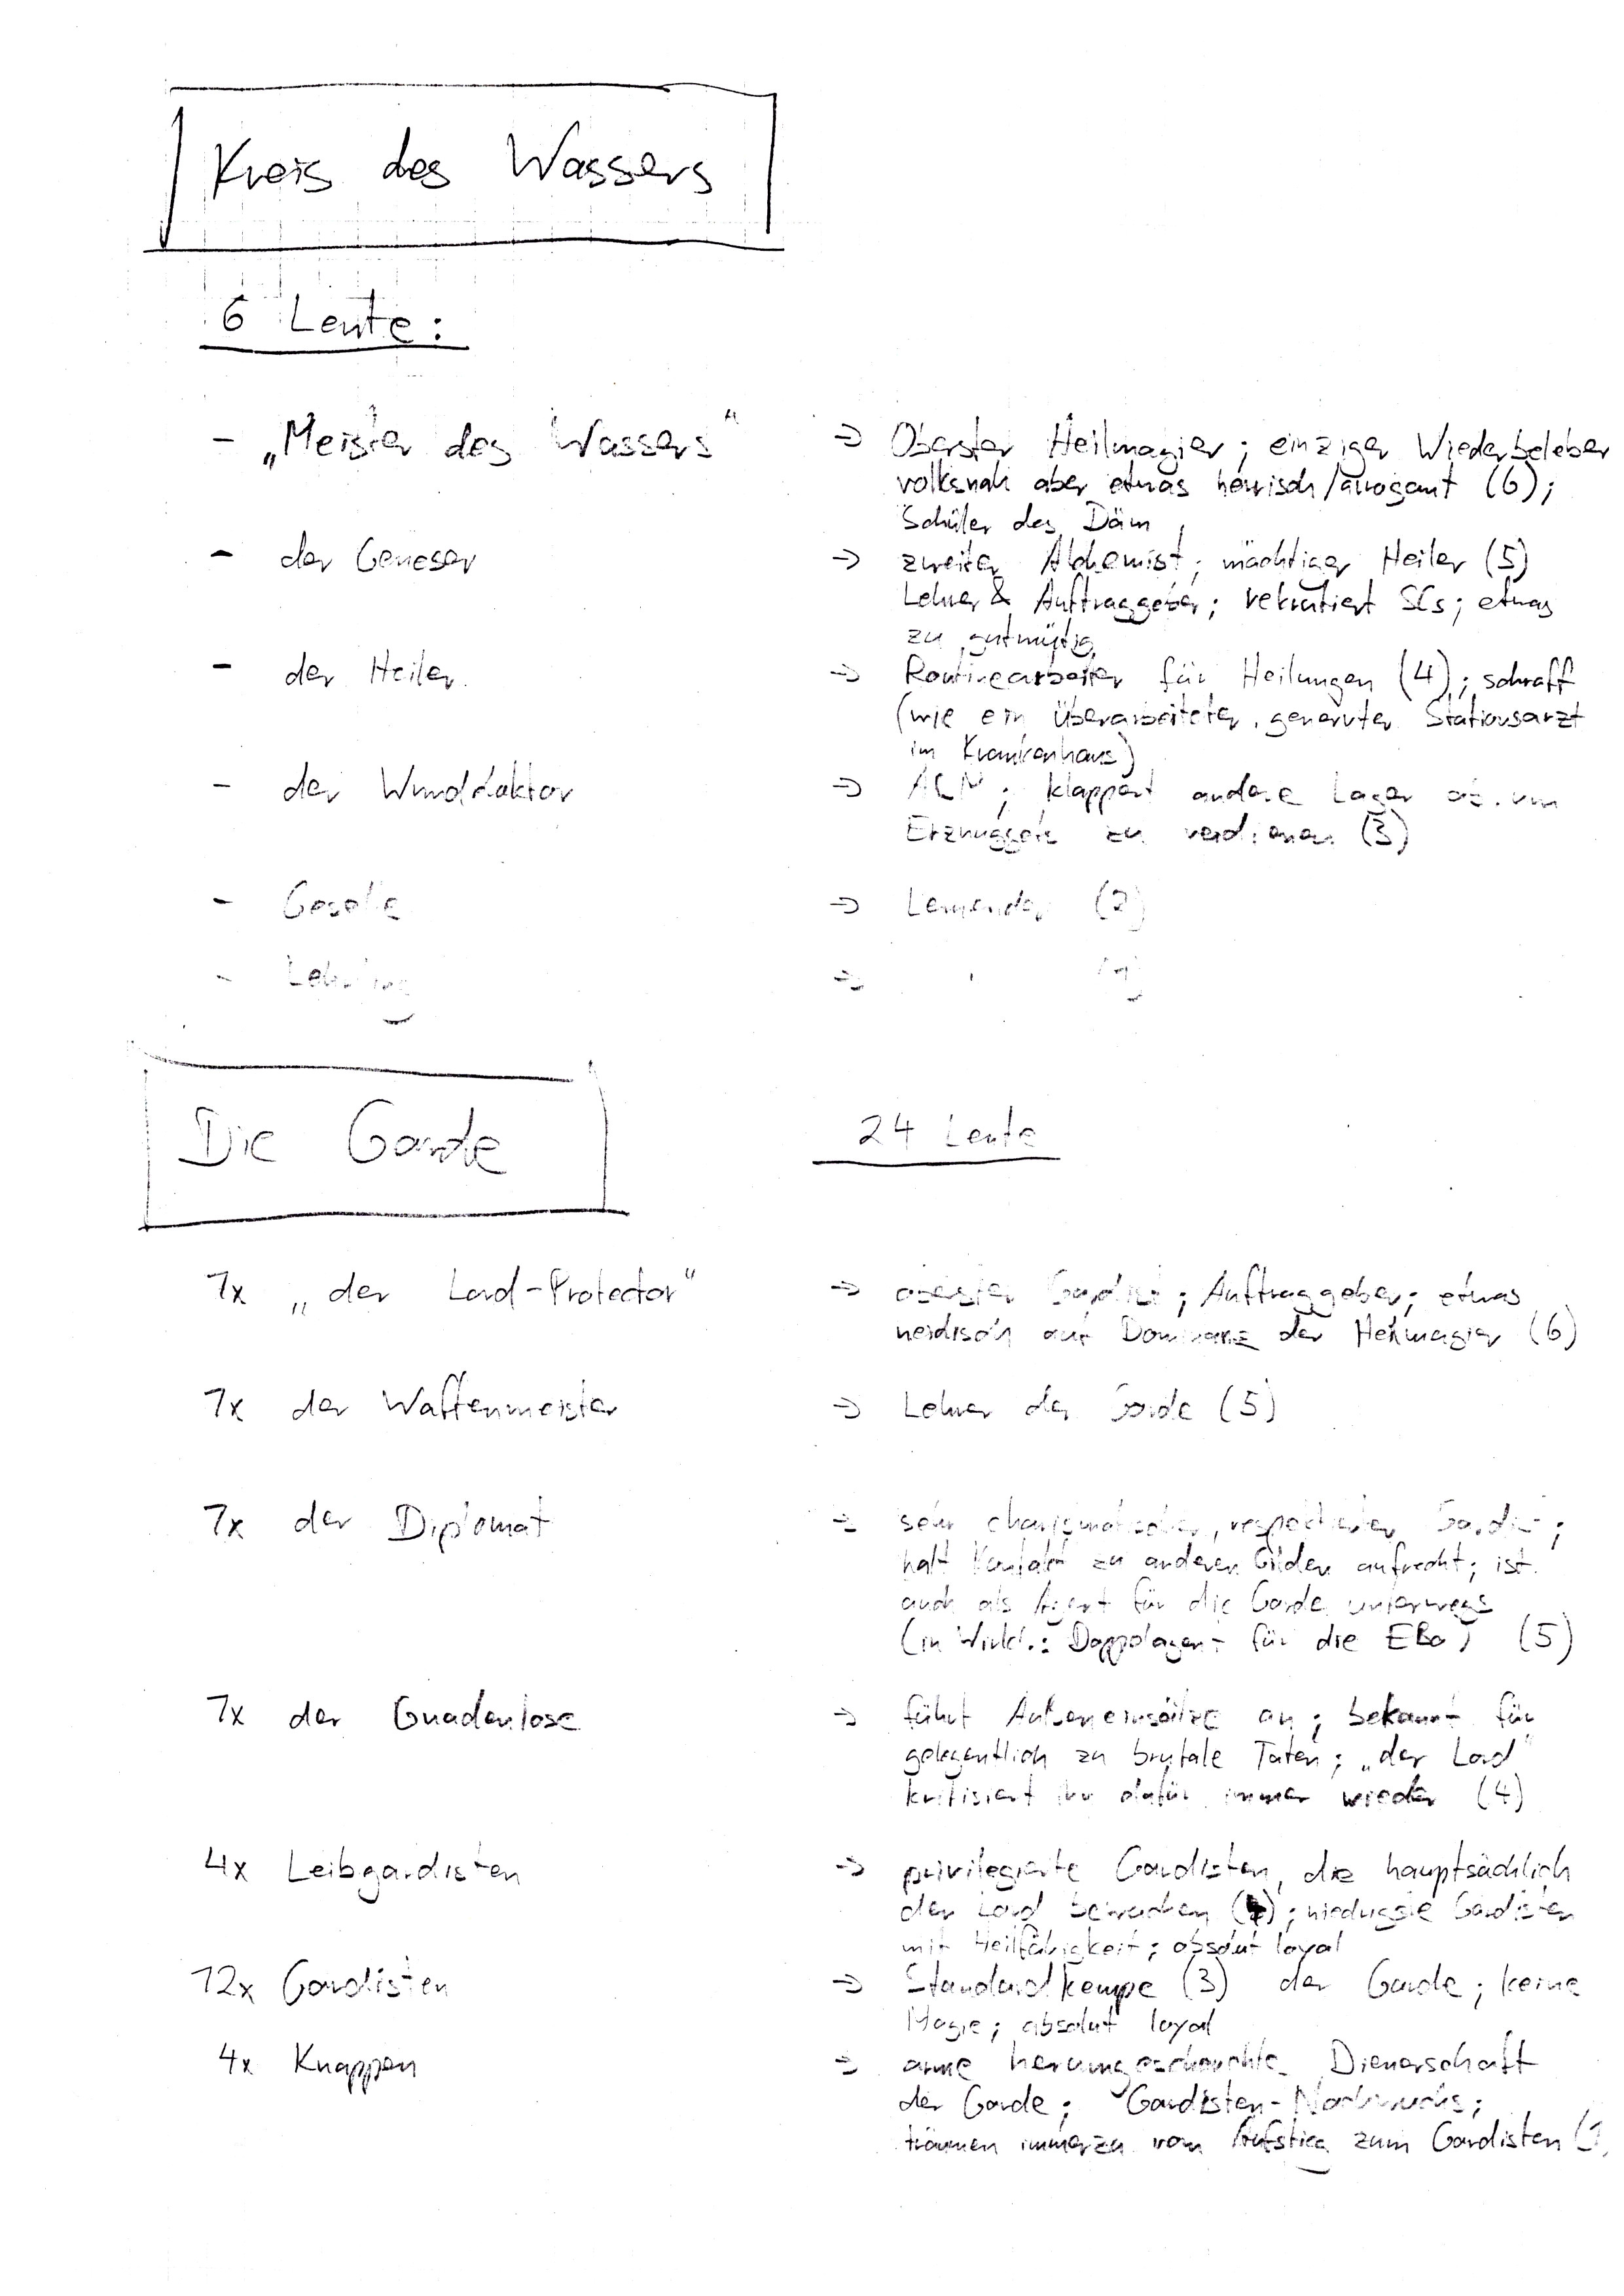 Kreis des Wassers
6 Leute:
- „Meister des Wassers“ => Oberster Heilmagier; einziger Wiederbeleber
volksnah aber etwas herrisch/arrogant (6);
Schüler des Däm
- der Geneser => zweiter Alchemist; mächtiger Heiler (5)
Lehrer & Auftraggeber; rekrutiert SCs; etwas
zu gutmütig
- der Heiler => Routinearbeiter für Heilungen (4); schroff
(wie ein überarbeiteter, genervter Stationsarzt
im Krankenhaus)
- der Wunddoktor => ; klappert andere Lager ab, um
Erznuggets zu verdienen (3)
- Geselle => Lernender (2)
- Lehrling =>
Die Garde 24 Leute
1x „der Lord-Protector“ => oberster Gardist; Auftraggeber; etwas
neidisch auf Dominanz der Heilmagier (6)
1x der Waffenmeister => Lehrer der Garde (5)
1x der Diplomat => sehr charismatischer, respektierter Gardist;
hält Kontakt zu anderen Gilden aufrecht; ist
auch als Agent für die Garde unterwegs
(in Wirkl.: Doppelagent für die EBa) (5)
1x der Gnadenlose => führt Außeneinsätze an; bekannt für
gelegentlich zu brutale Taten; „der Lord“
kritisiert ihn dafür immer wieder (4)
4x Leibgardisten => privilegierte Gardisten, die hauptsächlich
den Lord bewachen (4); niedrigste Gardisten
mit Heilfähigkeit; absolut loyal
12x Gardisten => Standardkempe (3) der Garde; keine
Magie; absolut loyal
4x Knappen => arme herumgescheuchte Dienerschaft
der Garde; Gardisten-Nachwuchs;
träumen immerzu vom Aufstieg zum Gardisten